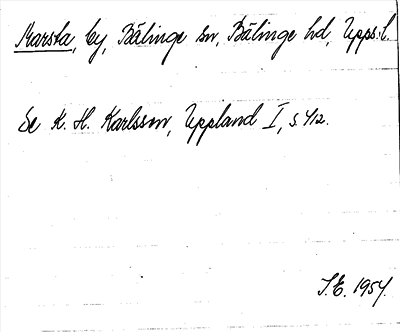 Marsta, by, Bälinge sn, Bälinge hd, Upps. l.
Se K. H. Karlsson, Uppland I, s 412.
J.E. 1954.